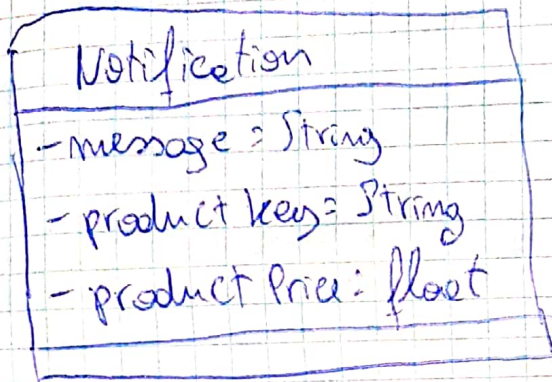 Notification
- message : String
- product key : String
- product Price : float